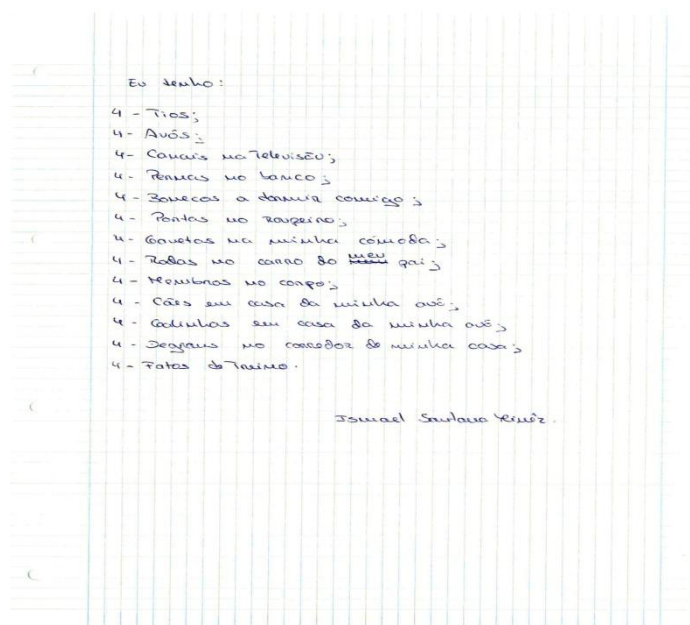 Eu tenho:
4 - Tios;
4 - Avós;
4 - Canais na Televisão;
4 - Pernas no banco;
4 - Bonecos a dormir comigo;
4 - Portas no Roupeiro;
4 - Gavetas na minha cómoda;
4 - Rodas no carro do meu pai;
4 - Membros no corpo;
4 - Cães em casa da minha avó;
4 - em casa da minha avó;
4 - Degraus no corredor de minha casa;
4 - Fatos de Treino.
Ismael Santana